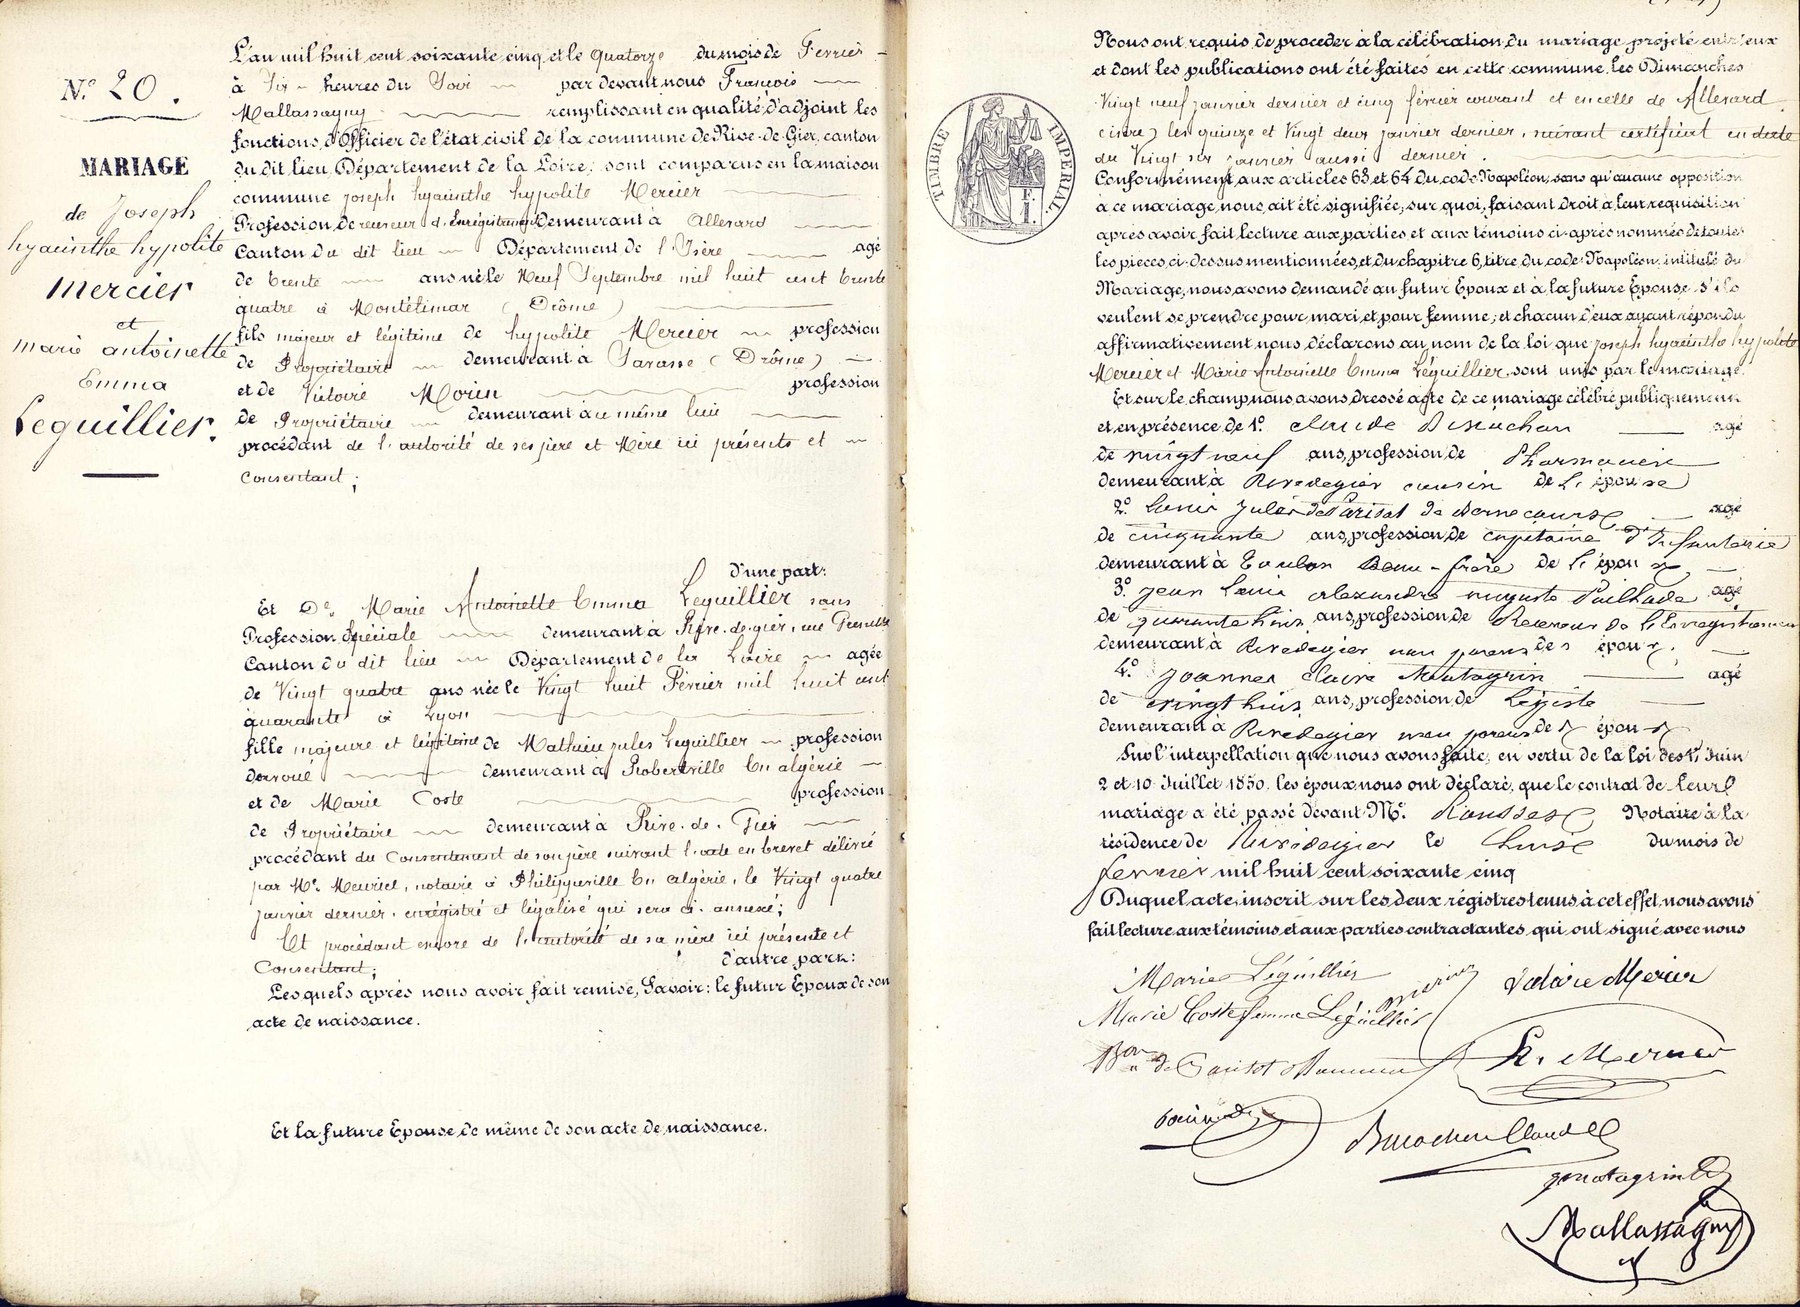 N.° 20.
MARIAGE
de Joseph
hyacinthe hypolite
Mercier
et
marie antoinette
Emma
Leguillier.
L'an mil huit cent soixante cinq et le quatorze du mois de Fevrier
à Six heures du Soir par devant nous François
Mallassagny remplissant en qualité d'adjoint les
fonctions d'Officier de l'état civil de la commune de Rive-de-Gier, canton
du dit lieu, Département de la Loire; sont comparus en la maison
commune joseph hyacinthe hypolite Mercier
Profession de receveur d'Enregistrement demeurant à Allevard
Canton du dit lieu Département de l'Isère agé
de trente ans né le Neuf Septembre mil huit cent trente
quatre à Montélimar (Drôme)
fils majeur et légitime de hypolite Mercier profession
de Propriétaire demeurant à Savasse (Drôme)
et de Victoire Morin profession
de Propriétaire demeurant au même lieu
procédant de l'autorité de ses père et Mère ici présents et
Consentant;
d'une part:
Et De. Marie Antoinette Emma Leguillier sans
Profession Spéciale demeurant à Rive-de-gier, rue
Canton du dit lieu Département de la Loire agée
de Vingt quatre ans née le Vingt huit Février mil huit cent
quarante à Lyon
fille majeure et légitime de Mathieu jules Leguillier profession
d'avoué demeurant à Robertville En algérie
et de Marie Coste profession
de Propriétaire demeurant à Rive-de-Gier
procédant du Consentement de son père suivant l'acte en brevet délivré
par Me. Meuriel, notaire à Philippeville En algérie, le Vingt quatre
janvier dernier, enrégistré et légalisé qui sera ci-annexé;
Et procédant encore de l'autorité de sa mère ici présente et
Consentant; d'autre part:
Lesquels après nous avoir fait remise, Savoir: le futur Epoux de son
acte de naissance.
Et la future Epouse de même de son acte de naissance.
TIMBRE IMPERIAL.
E. I.
Nous ont requis de proceder à la célébration du mariage projeté entr'eux
et dont les publications ont été faites en cette commune les Dimanches
Vingt neuf janvier dernier et cinq février courant et en celle de Allevard
(isère) les quinze et Vingt deux janvier dernier, suivant certificat en date
du Vingt six janvier aussi dernier.
Conformément aux articles 63 et 64 du code Napoléon, sans qu'aucune opposition
à ce mariage nous ait été signifiée; sur quoi, faisant droit à leur requisition
après avoir fait lecture aux parties et aux témoins ci-après nommés de toutes
les pièces ci-dessus mentionnées, et du chapitre 6, titre du code Napoléon intitulé du
Mariage, nous avons demandé au futur Epoux et à la future Epouse s'ils
veulent se prendre pour mari et pour femme; et chacun d'eux ayant répondu
affirmativement nous déclarons au nom de la loi que joseph hyacinthe hypolite
Mercier et Marie Antoinette Emma Léguillier sont unis par le mariage.
Et sur le champ nous avons dressé acte de ce mariage célébré publiquement
et en présence de 1°. Claude agé
de vingt neuf ans, profession de Pharmacien
demeurant à Rivedegier cousin de l'épouse
2°. Louis Jules de Parisot de agé
de cinquante ans, profession de capitaine d'Infanterie
demeurant à Toulon Beau-frère de l'époux
3°. Jean Louis Alexandre Auguste Pailhade agé
de quarante huit ans, profession de Receveur de l'Enregistrement
demeurant à Rivedegier non parent des époux.
4°. Joannes Claire Montagnin agé
de vingt huit ans, profession de Légiste
demeurant à Rivedegier non parent des époux
Sur l'interpellation que nous avons faite, en vertu de la loi des 17 Juin
2 et 10 Juillet 1850, les époux nous ont déclaré, que le contrat de leur
mariage a été passé devant Me. Rousset Notaire à la
résidence de Rivedegier le treize du mois de
février mil huit cent soixante cinq
Duquel acte, inscrit sur les deux régistres tenus à cet effet, nous avons
fait lecture aux témoins et aux parties contractantes, qui ont signé avec nous
Marie Léguillier
Mercier
Marie Coste femme Léguillier
Bon de Parisot
H. Mercier
Claude
Mallassagny